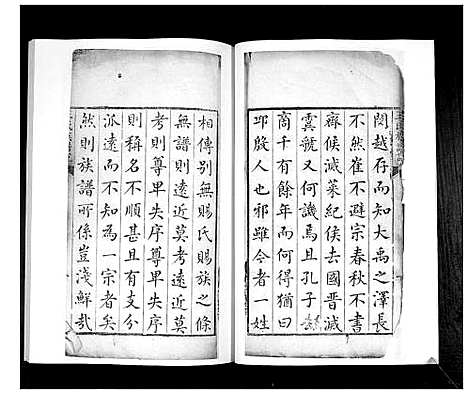 閩越存而知大禹之澤長
不然崔不避宗春秋不書
齊侯滅萊紀侯去國晋滅
雲虢又何譏焉且孔子去
商千有餘年而何得猶曰
邱殷人也邪雖今者一姓
相傳别無賜氏賜族之條
無譜則遠近莫考遠近莫
考則尊卑失序尊卑失序
則稱名不順甚且有支分
派遠而不知為一宗者矣
然則族譜所係豈淺鮮哉